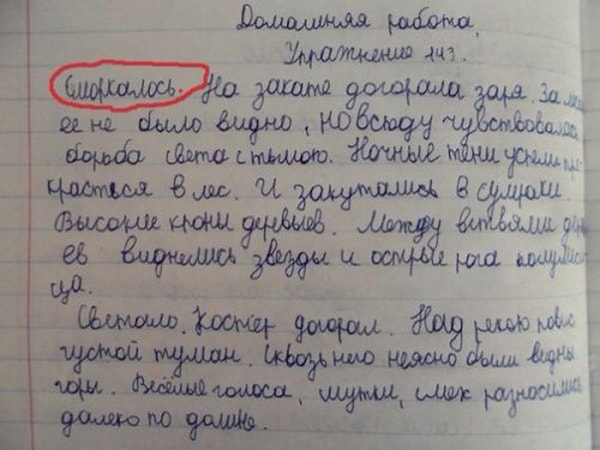 Домашняя работа.
Упражнение 143.
Сморкалось. На закате догорала заря. За
ее не было видно, но всюду чувствовалась
борьба света с тьмою. Ночные тени успели про
красться в лес. И закутались в сумраки.
Высокие кроны деревьев. Между ветвями дерев
ев виднелись звезды и острые рога полумеся
ца.
Светало. Костёр догорал. Над рекою повис
густой туман. Сквозь него неясно были видны
горы. Весёлые голоса, шутки, смех разносились
далеко по долине.